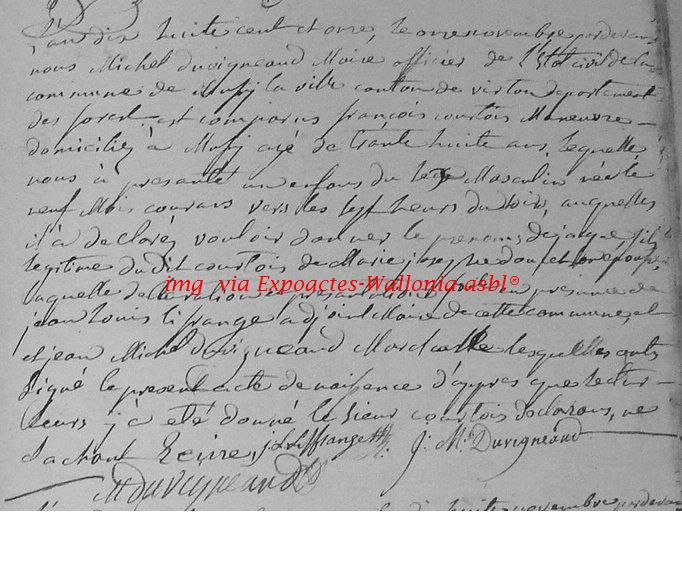 L'an dix huite cent et onze, le onze novembre pardevant
nous Michel duvigneaud Maire officier de l'Etat civil de la
commune de Mussy la ville canton de virton departement
des forest est comparus françois courtois Maneuvre
domiciliez à Mussy agé de trante huite ans, lequelle
nous à presanté un enfans du sexe Masculin née le
neuf Mois courans vers les sept heurs du soir, auquelles
il à declarés vouloir donner le prenoms de jacque, fils
legitime dudit courtois de Marie josephe don, et son epouse
laquelle declaration et presantation faite en presance de
jean louis lifrange adjoint Maire de cette commune, et
et jean Michel duvigneaud Mord lesquelles onts
signé le present acte de naissence d'appres que lectur
leurs y à eté donné le sieur courtois declarans, ne
sachant Ecirre, J: L: Liffrange J: M: Duvigneaud
M duvigneaud
huite novembre pardevan
img via Expoactes-Wallonia.asbl®